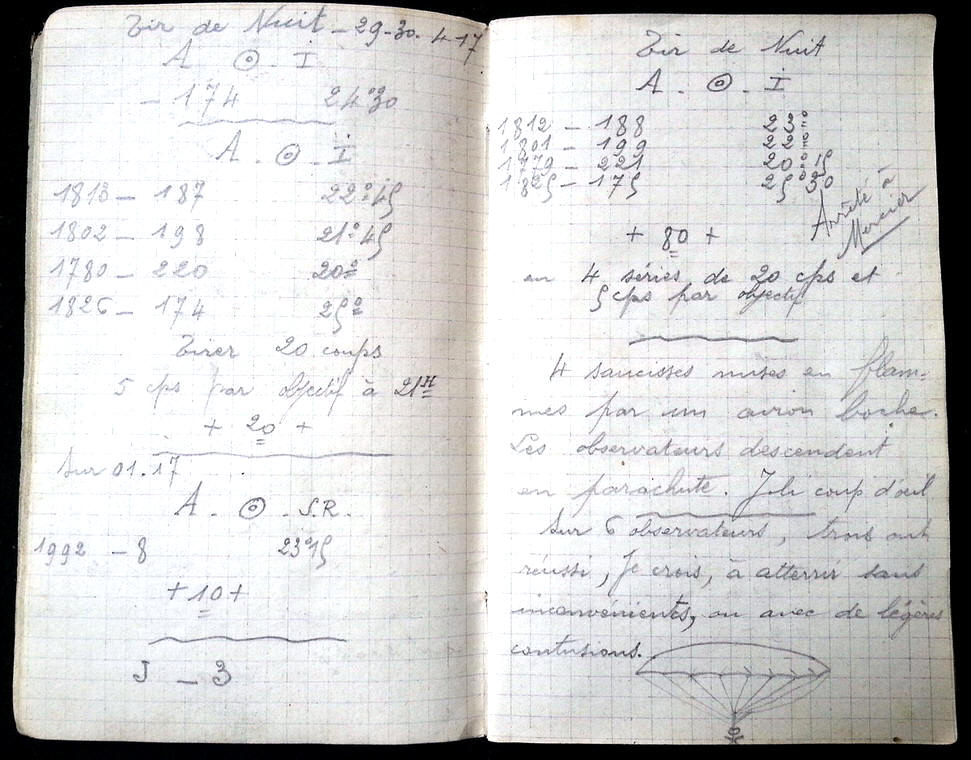 Tir de Nuit - 29-30. 4-17
A ⊙ . I
- 174 24°30
A . ⊙ . I
1813 - 187 22°45
1802 - 198 21°45
1780 - 220 20°
1826 - 174 25°
Tirer 20 coups
5 cps par objectif à 21H
+ 20 +
Sur 01.17
A . ⊙ . S.R.
1992 - 8 23°15
+ 10 +
J - 3
Tir de Nuit
A . ⊙ . I
1812 - 188 23°
1801 - 199 22°
1779 - 221 20°15
1825 - 175 25°30
Arrêté à
Mercier
+ 80 +
en 4 séries de 20 cps et
5 cps par objectif
4 saucisses mises en flam-
mes par un avion boche.
Les observateurs descendent
en parachute. Joli coup d'œil
Sur 6 observateurs, trois ont
réussi, je crois, à atterrir sans
inconvénients, ou avec de légères
contusions.